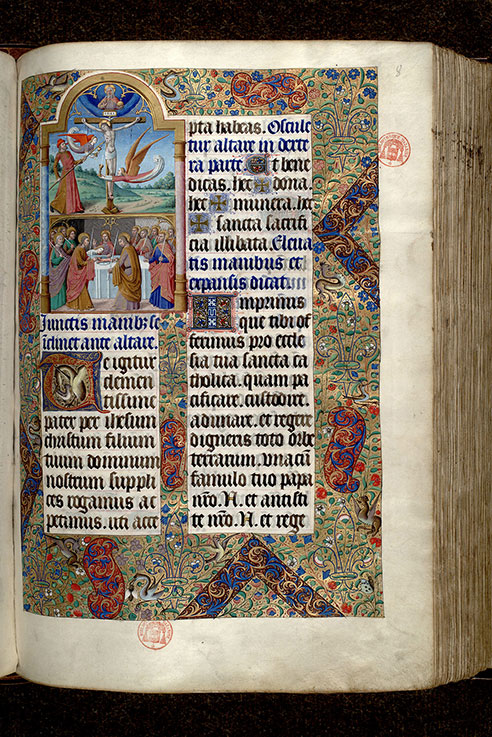 Iunctis manibus
inclinet ante altare.
Te igitur
clemen
tissime
pater per ihesum
christum filium
tuum dominum
nostrum suppli
ces rogamus ac
petimus. uti acce
pta habeas. Oscule
tur altare in dexte
ra parte. Et bene
dicas. hec ✠ dona.
hec ✠ munera. hec
✠ sancta sacrifi
cia illibata. Eleua
tis manibus et
expansis dicatur
In primis
que tibi of
ferimus pro eccle
sia tua sancta ca
tholica. quam pa
cificare. custodire.
adunare. et regere
digneris toto orbe
terrarum. vna cum
famulo tuo papa
nro. N. et antisti
te nro. N. et rege